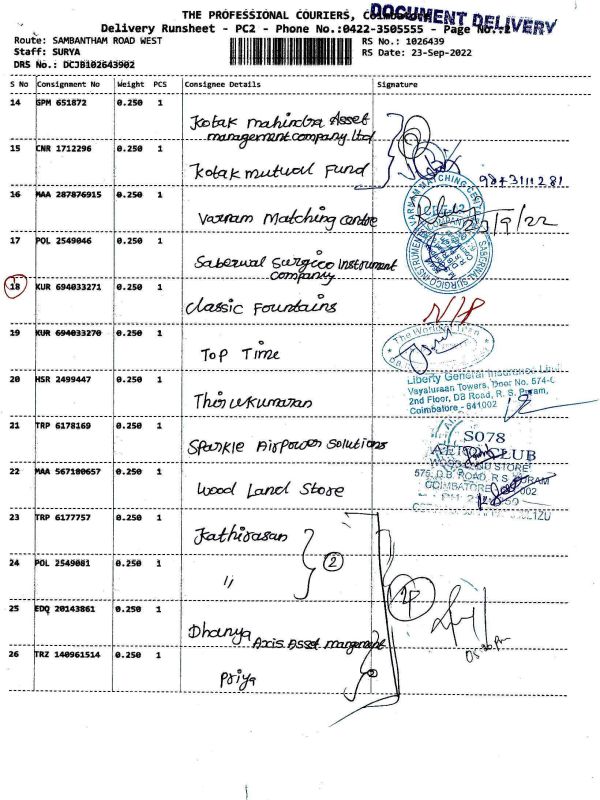 THE PROFESSIONAL COURIERS, Coimbatore
DOCUMENT DELIVERY
Delivery Runsheet - PC2 - Phone No.:0422-3505555 - Page No.:2
Route: SAMBANTHAM ROAD WEST
RS No.: 1026439
Staff: SURYA
RS Date: 23-Sep-2022
DRS No.: DCJB102643902
S No Consignment No Weight PCS Consignee Details Signature
14 GPM 651872 0.250 1
Kotak mahindra Asset
management company ltd
15 CNR 1712296 0.250 1
Kotak mutual Fund
9843111281
16 MAA 287876915 0.250 1
Varnam Matching centre
23/9/22
17 POL 2549046 0.250 1
Saberwal Surgico Instrument
company
18 KUR 694033271 0.250 1
classic Fountains
N/P
19 KUR 694033270 0.250 1
Top Time
20 HSR 2499447 0.250 1
Thirukumaran
Liberty General Insurance
Vayaluraan Towers, Door No. 574-C
2nd Floor, DB Road, R. S. Puram,
Coimbatore - 641002
21 TRP 6178169 0.250 1
Sparkle Airpower solutions
S078
22 MAA 567180657 0.250 1
Wood Land Store
WOODLAND STORE
575, D.B. ROAD, R.S. PURAM
COIMBATORE
23 TRP 6177757 0.250 1
Kathirasan
24 POL 2549081 0.250 1
"
2
25 EDQ 20143861 0.250 1
Dhanya
Axis Asset mangement
26 TRZ 140961514 0.250 1
Priya